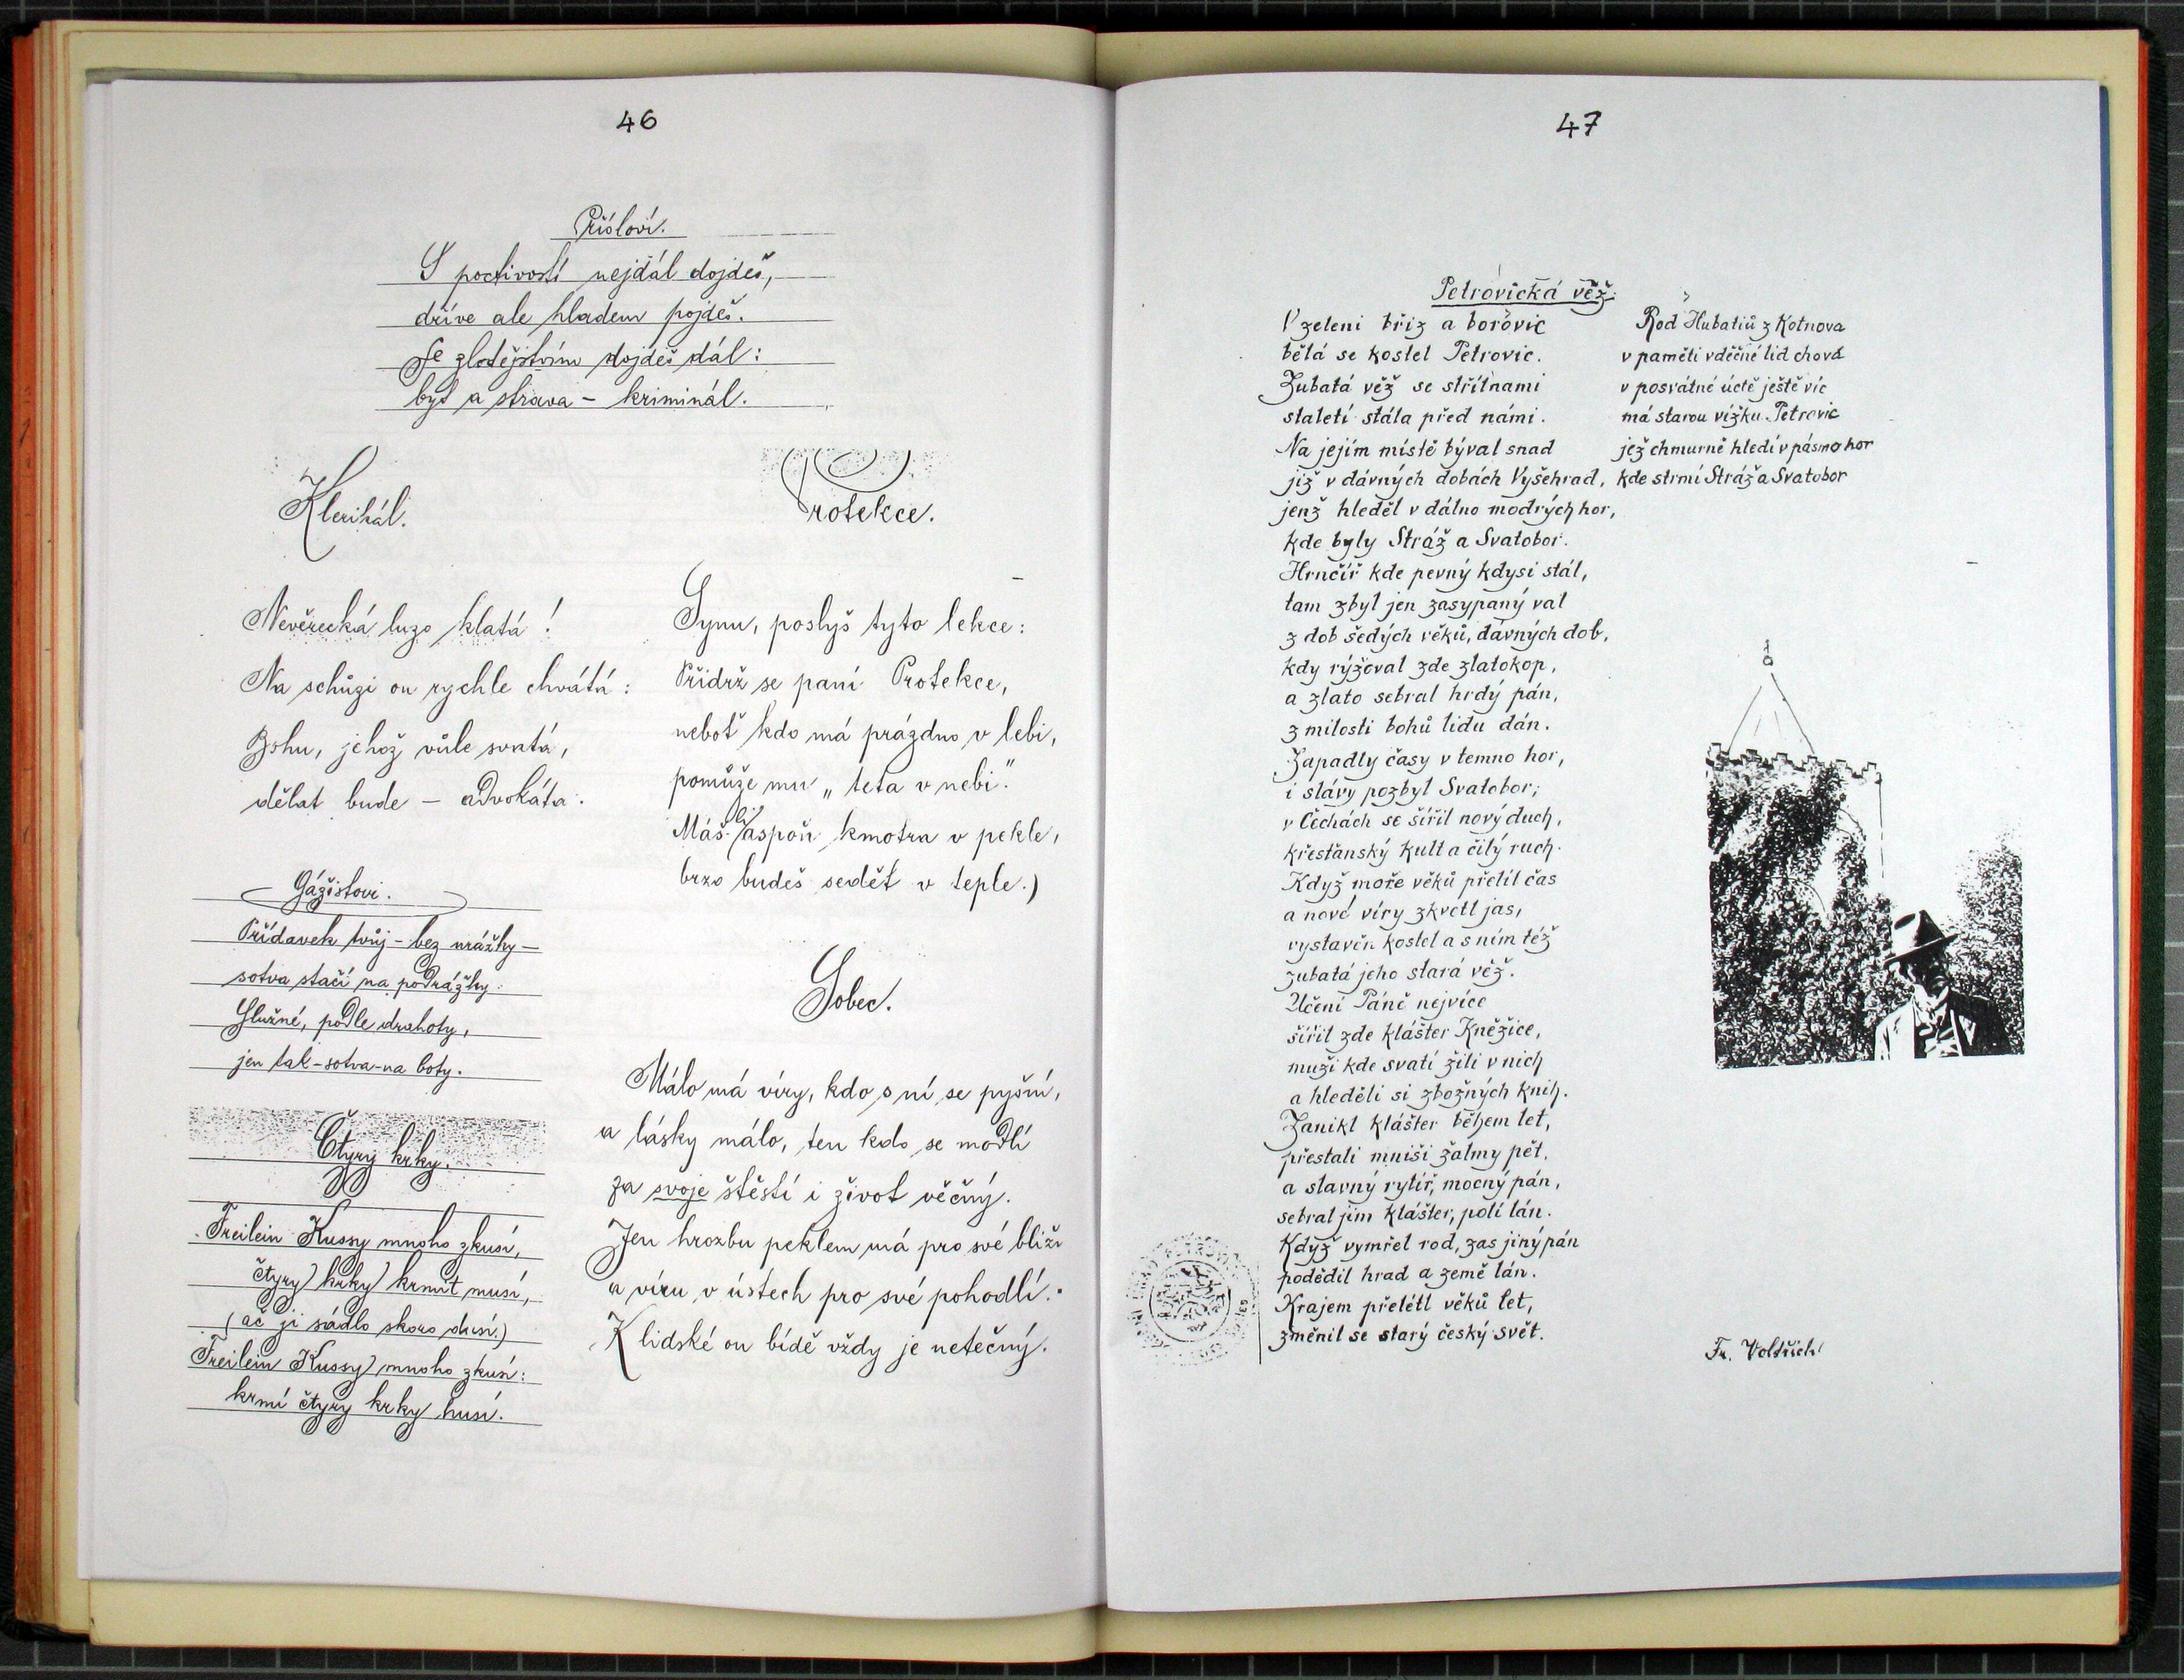 46
Přísloví.
S poctivostí nejdál dojdeš,
dříve ale hladem pojdeš.
Se zlodějstvím dojdeš dál:
byt a strava – kriminál.
Klerikál.
Nevěrecká luzo klatá!
Na schůzi on rychle chvátá:
Bohu, jehož vůle svatá,
dělat bude – advokáta.
Gážistovi.
Přídavek tvůj – bez urážky –
sotva stačí na podrážky.
Slušné, podle drahoty,
jen tak – sotva – na boty.
Čtyry krky.
Freilein Kussy mnoho zkusí,
čtyry krky krmit musí,
(ač ji sádlo skoro dusí.)
Freilein Kussy mnoho zkusí:
krmí čtyry krky husí.
Protekce.
Synu, poslyš tyto lekce:
Přidrž se paní Protekce,
neboť kdo má prázdno v lebi,
pomůže mu „teta v nebi."
Máš-li aspoň kmotra v pekle,
brzo budeš sedět v teple.)
Sobec.
Málo má víry, kdo s ní se pyšní,
a lásky málo, ten kdo se modlí
za svoje štěstí i život věčný.
Jen hrozbu peklem má pro své bližní
a víru v ústech pro své pohodlí.
K lidské on bídě vždy je netečný.
47
Petrovická věž.
V zeleni bříz a borovic
bělá se kostel Petrovic.
Zubatá věž se střílnami
staletí stála před námi.
Na jejím místě býval snad
již v dávných dobách Vyšehrad,
jenž hleděl v dálno modrých hor,
kde byly Stráž a Svatobor.
Hrnčíř kde pevný kdysi stál,
tam zbyl jen zasypaný val
z dob šedých věků, dávných dob,
kdy rýžoval zde zlatokop,
a zlato sebral hrdý pán,
z milosti bohů lidu dán.
Zapadly časy v temno hor,
i slávy pozbyl Svatobor;
v Čechách se šířil nový duch,
křesťanský kult a čilý ruch.
Když moře věků přelil čas
a nové víry zkvetl jas,
vystavěn kostel a s ním též
zubatá jeho stará věž.
Učení Páně nejvíce
šířil zde klášter Kněžice,
muži kde svatí žili v nich
a hleděli si zbožných knih.
Zanikl klášter během let,
přestali mniši žalmy pět,
a slavný rytíř, mocný pán,
sebral jim klášter, polí lán.
Když vymřel rod, zas jiný pán
podědil hrad a země lán.
Krajem přelétl věků let,
změnil se starý český svět.
Rod Hubatiů z Kotnova
v paměti vděčné lid chová
v posvátné úctě ještě víc
má starou vížku Petrovic
jež chmurně hledí v pásmo hor
kde strmí Stráž a Svatobor
Fr. Voldřich